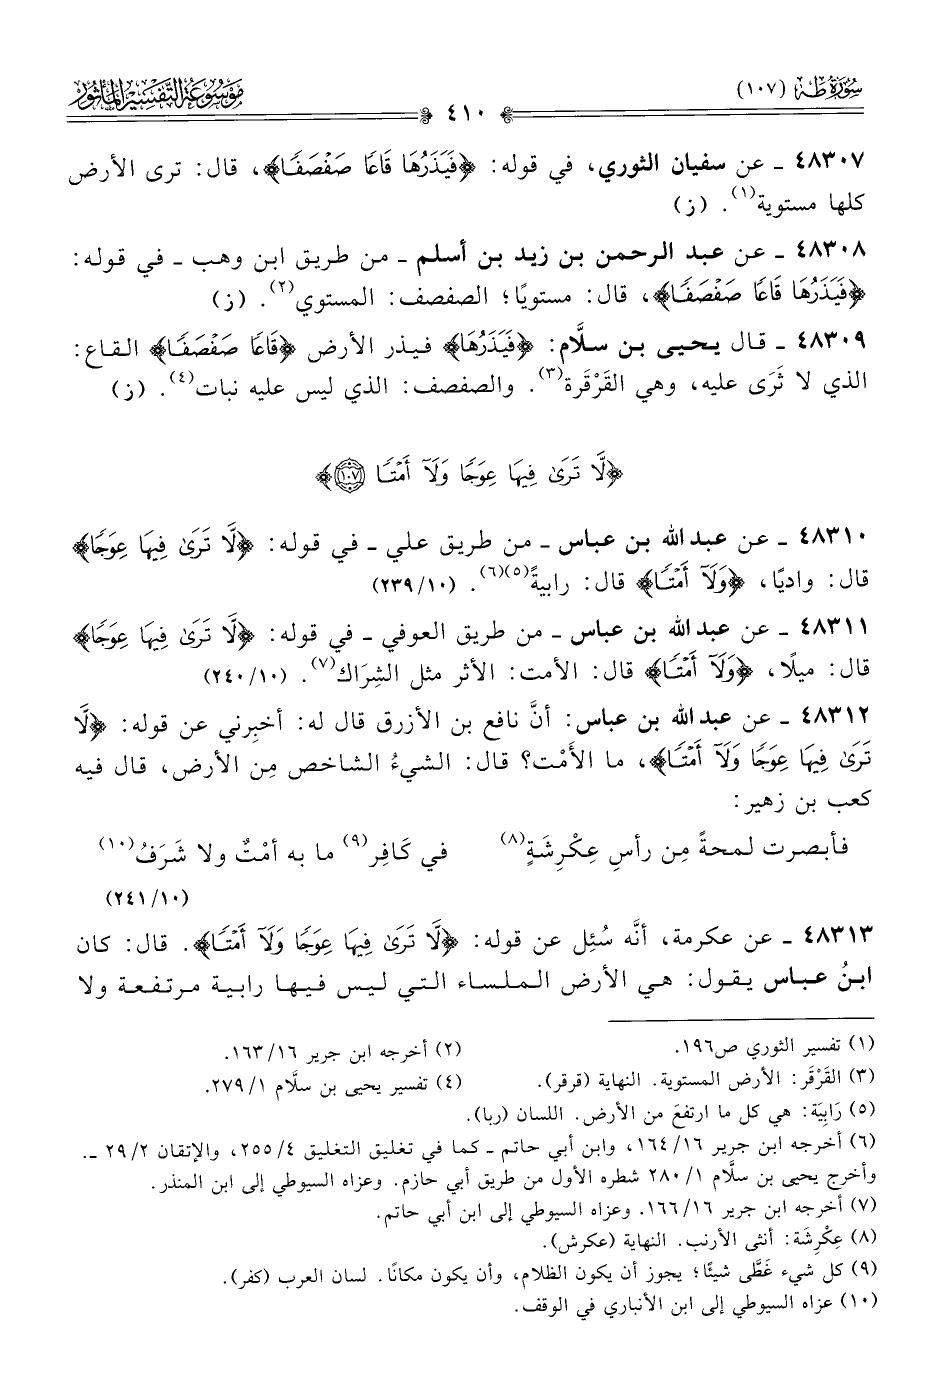 سُورَةُ طه (١٠٧)
٤١٠
مَوْسُوعَةُ التَّفْسِيْرِ المَأْثُوْر
٤٨٣٠٧ ـ عن سفيان الثوري، في قوله: ﴿فَيَذَرُهَا قَاعًا صَفْصَفًا﴾، قال: ترى الأرض
كلها مستوية(١). (ز)
٤٨٣٠٨ ـ عن عبد الرحمن بن زيد بن أسلم ـ من طريق ابن وهب ـ في قوله:
﴿فَيَذَرُهَا قَاعًا صَفْصَفًا﴾، قال: مستويًا؛ الصفصف: المستوي(٢). (ز)
٤٨٣٠٩ ـ قال يحيى بن سلَّام: ﴿فَيَذَرُهَا﴾ فيذر الأرض ﴿قَاعًا صَفْصَفًا﴾ القاع:
الذي لا ثَرَى عليه، وهي القَرْقَرة(٣). والصفصف: الذي ليس عليه نبات(٤). (ز)
﴿لَّا تَرَىٰ فِيهَا عِوَجًا وَلَآ أَمْتًا ١٠٧﴾
٤٨٣١٠ ـ عن عبد الله بن عباس ـ من طريق علي ـ في قوله: ﴿لَّا تَرَىٰ فِيهَا عِوَجًا﴾
قال: واديًا، ﴿وَلَآ أَمْتًا﴾ قال: رابيةً(٥)(٦). (١٠/ ٢٣٩)
٤٨٣١١ ـ عن عبد الله بن عباس ـ من طريق العوفي ـ في قوله: ﴿لَّا تَرَىٰ فِيهَا عِوَجًا﴾
قال: ميلًا، ﴿وَلَآ أَمْتًا﴾ قال: الأمت: الأثر مثل الشِرَاك(٧). (١٠/ ٢٤٠)
٤٨٣١٢ ـ عن عبد الله بن عباس: أنَّ نافع بن الأزرق قال له: أخبِرني عن قوله: ﴿لَّا
تَرَىٰ فِيهَا عِوَجًا وَلَآ أَمْتًا﴾، ما الأَمْت؟ قال: الشيءُ الشاخص مِن الأرض، قال فيه
كعب بن زهير:
فأبصرت لمحةً مِن رأسِ عِكْرِشَةٍ(٨) في كَافِر(٩) ما به أمْتٌ ولا شَرَفُ(١٠)
(١٠/ ٢٤١)
٤٨٣١٣ ـ عن عكرمة، أنَّه سُئِل عن قوله: ﴿لَّا تَرَىٰ فِيهَا عِوَجًا وَلَآ أَمْتًا﴾. قال: كان
ابنُ عباس يقول: هي الأرض الملساء التي ليس فيها رابية مرتفعة ولا
(١) تفسير الثوري ص١٩٦. (٢) أخرجه ابن جرير ١٦/ ١٦٣.
(٣) القَرْقَر: الأرض المستوية. النهاية (قرقر). (٤) تفسير يحيى بن سلَّام ١/ ٢٧٩.
(٥) رَابِيَة: هي كل ما ارتفعَ مِن الأرض. اللسان (ربا).
(٦) أخرجه ابن جرير ١٦/ ١٦٤، وابن أبي حاتم ـ كما في تغليق التغليق ٤/ ٢٥٥، والإتقان ٢/ ٢٩ ـ.
وأخرج يحيى بن سلَّام ١/ ٢٨٠ شطره الأول من طريق أبي حازم. وعزاه السيوطي إلى ابن المنذر.
(٧) أخرجه ابن جرير ١٦/ ١٦٦. وعزاه السيوطي إلى ابن أبي حاتم.
(٨) عِكْرِشَة: أنثى الأرنب. النهاية (عكرش).
(٩) كل شيء غَطَّى شيئًا؛ يجوز أن يكون الظلام، وأن يكون مكانًا. لسان العرب (كفر).
(١٠) عزاه السيوطي إلى ابن الأنباري في الوقف.